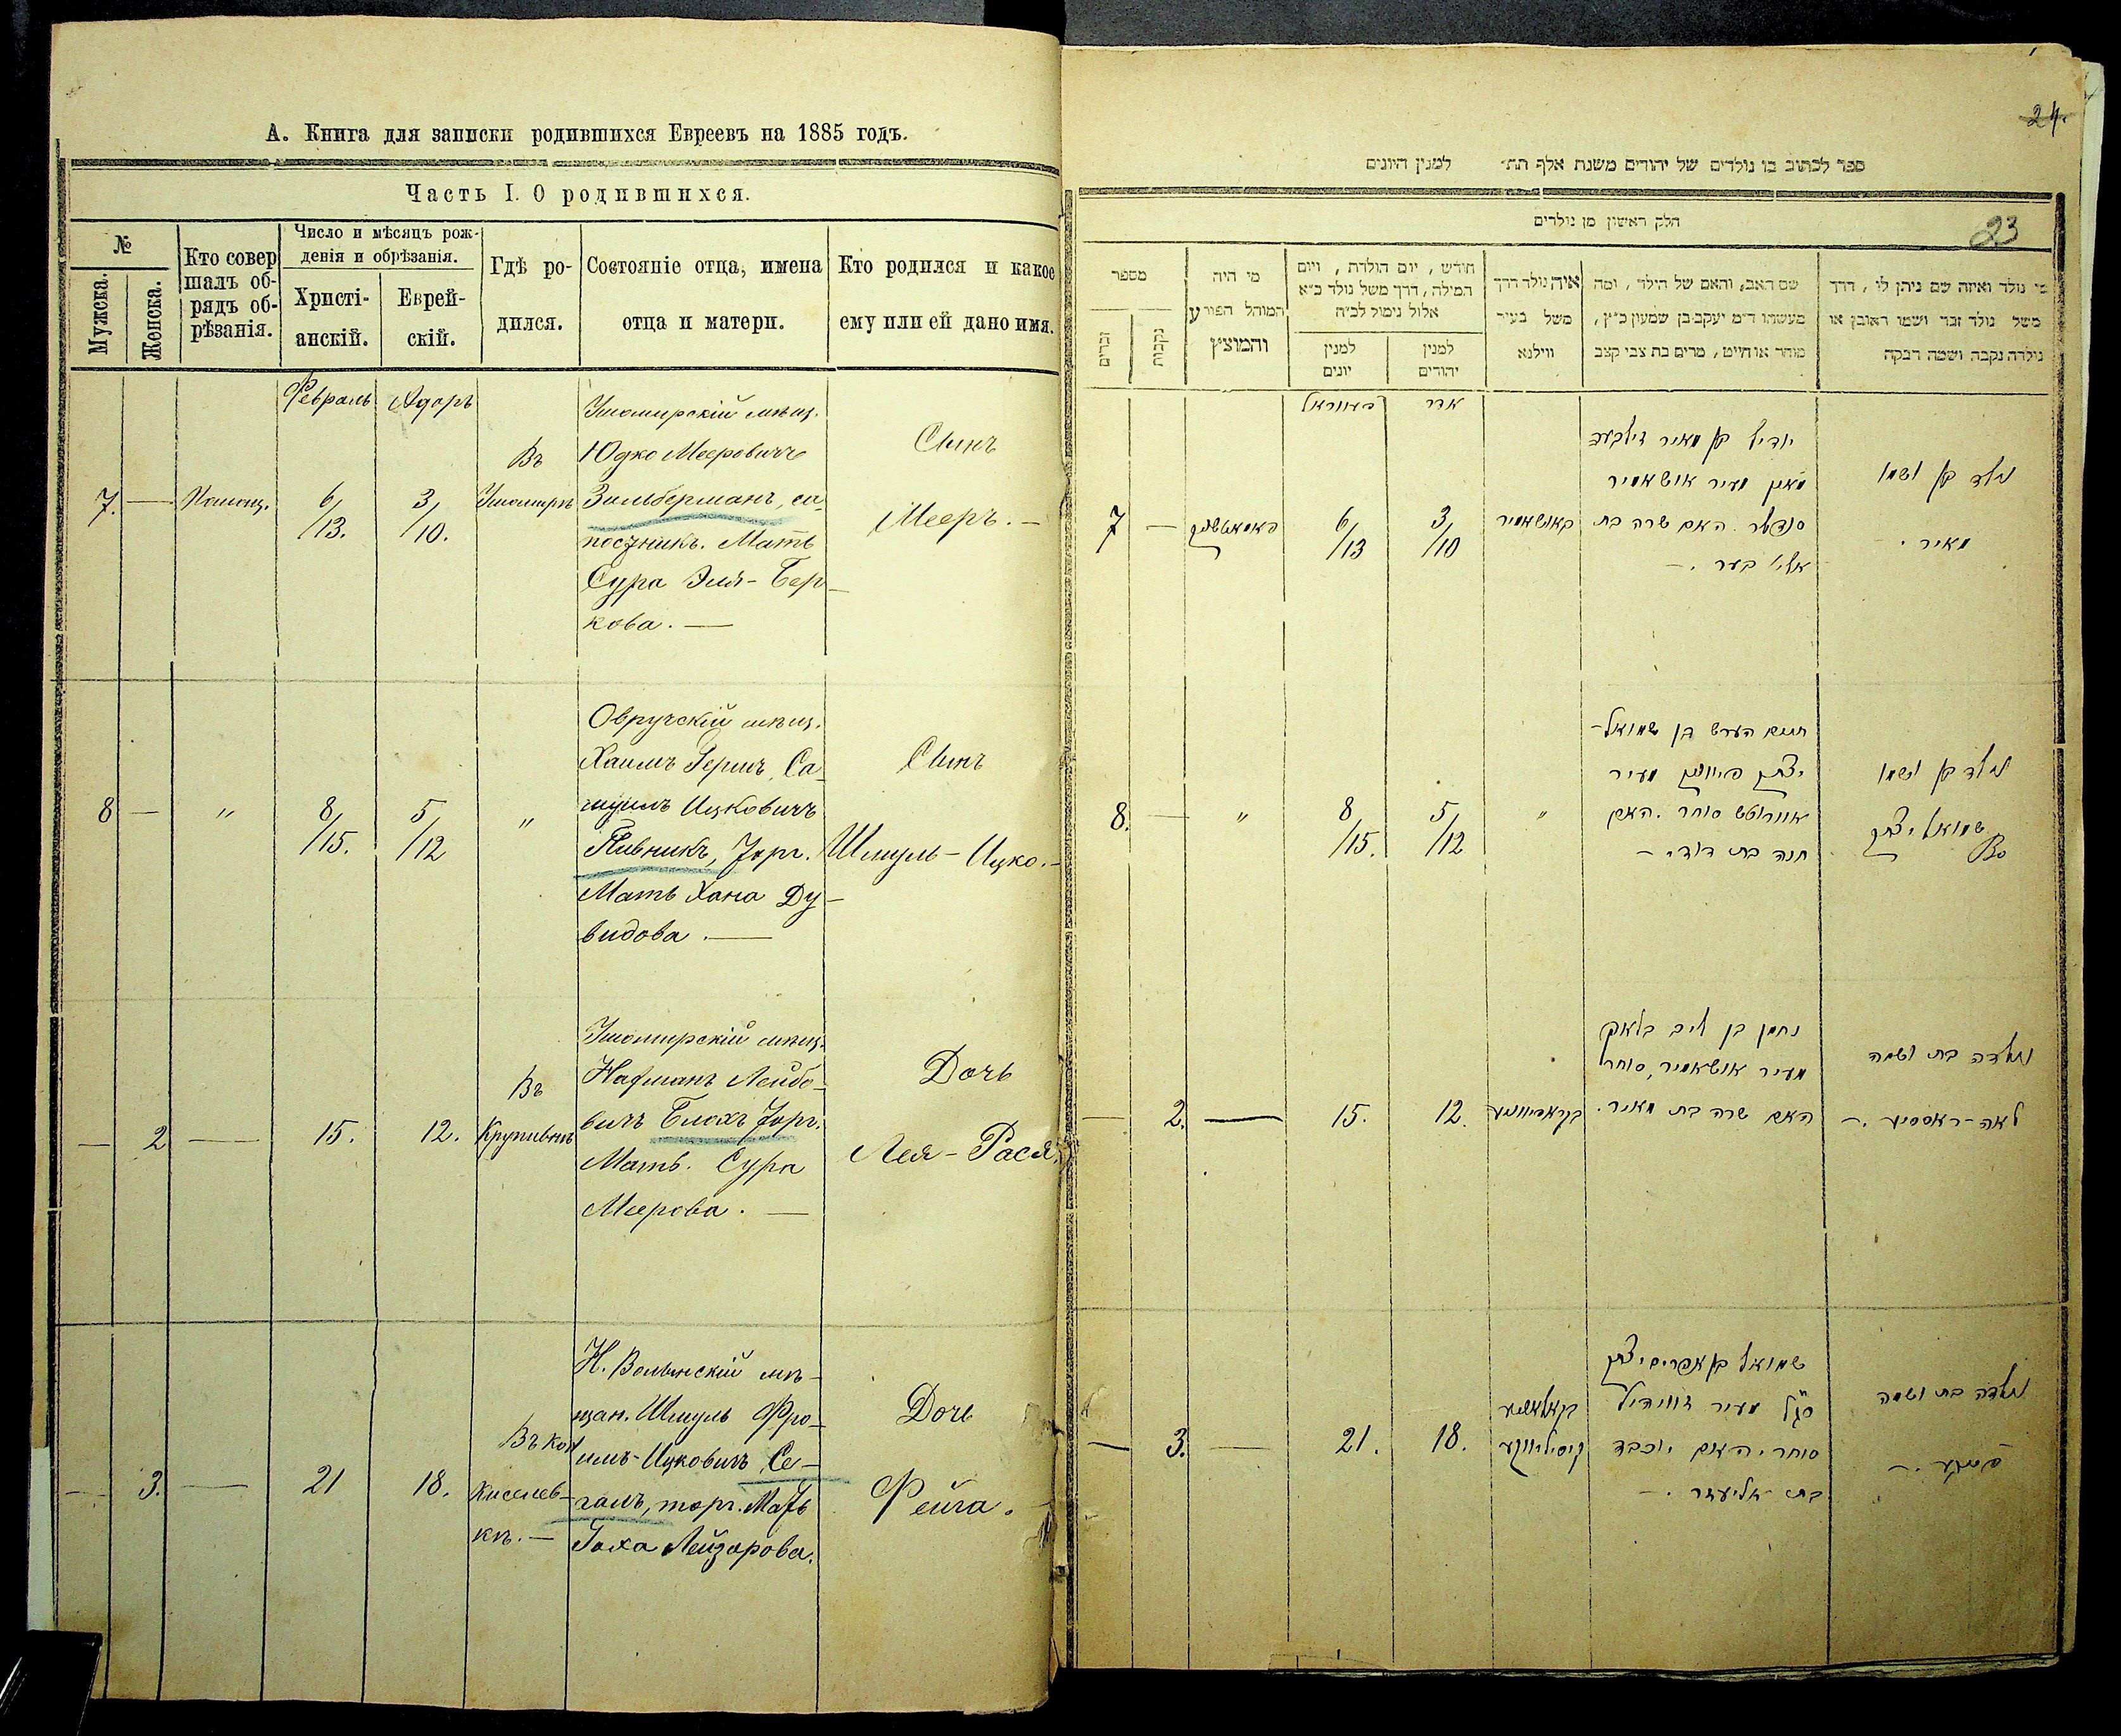 А. Книга для записки родившихся Евреевъ на 1885 годъ.
Часть I. О родившихся.
№
Мужска.
Женска.
Кто совер
шалъ об-
рядъ об-
рѣзанія.
Число и мѣсяцъ рож-
денія и обрѣзанія.
Христі-
анскій.
Еврей-
скій.
Гдѣ ро-
дился.
Состояніе отца, имена
отца и матери.
Кто родился и какое
ему или ей дано имя.
Февраль
Адаръ
7. —
6/13.
3/10.
Въ
Ушомирѣ
Ушомирскій мѣщ.
Юдко Мееровичъ
Зильберманъ, са-
пожникъ. Мать
Сура Эля-Бер-
кова. —
Сынъ
Мееръ. —
8 — "
8/15.
5/12
"
Овручскій мѣщ.
Хаимъ Гершъ Са-
муилъ Ицковичъ
Пивникъ, Торг.
Мать Хана Ду-
видова. —
Сынъ
Шмуль-Ицко. —
— 2 —
15.
12.
Въ
Крупивнѣ
Ушомирскій мѣщ.
Нахманъ Лейбо-
вичъ Блохъ Торг.
Мать. Сура
Меерова. —
Дочь
Лея-Рася.
— 3. —
21
18.
Въ кол
Киселев-
кѣ. —
Н. Волынскій мѣ-
щан. Шмуль Фро-
имъ-Ицковичъ Се-
галъ, торг. Мать
Гоха Лейзорова.
Дочь
Фейга.
24.
ספר לכתוב בו נולדים של יהודים משנת אלף תת״ למנין היונים
חלק ראשון מן נולדים
23
מספר
זכרים
נקבות
מי היה
המוהל הפורע
והמוצץ
חודש, יום הולדת, ויום
המילה, דרך משל נולד כ״א
אלול נימול לכ״ה
למנין
יונים
למנין
יהודים
איה נולד דרך
משל בעיר
ווילנא
שם האב, והאם של הילד, ומה
מעשהו ד״מ יעקב בן שמעון כ״ץ,
סוחר או חייט, מרים בת צבי קצב
מי נולד ואיזה שם ניתן לו, דרך
משל נולד זכר ושמו ראובן או
נולדה נקבה ושמה רבקה
פעווראל
אדר
7 —
6/13
3/10
באושאמיר
יודיל בן מאיר זילבער
מאן מעיר אושאמיר
סנדלר. האם שרה בת
אלי׳ בער. —
נולד בן ושמו
מאיר.
8. — "
8/15.
5/12
"
חיים הערש בן שמואל-
יצחק פיווניק מעיר
אוורוטש סוחר. האם
חנה בת דוד. —
נולד בן ושמו
שמואל יצחק
— 2. —
15.
12.
נחמן בן ליב בלאך
מעיר אושאמיר, סוחר
האם שרה בת מאיר.
נולדה בת ושמה
לאה-ראססיע. —
— 3. —
21.
18.
בקאלאניע
קיסילווקע
שמואל בן אפרים יצחק
סג״ל מעיר זוויהיל
סוחר. האם יוכבד
בת אליעזר. —
נולדה בת ושמה
פייגע. —